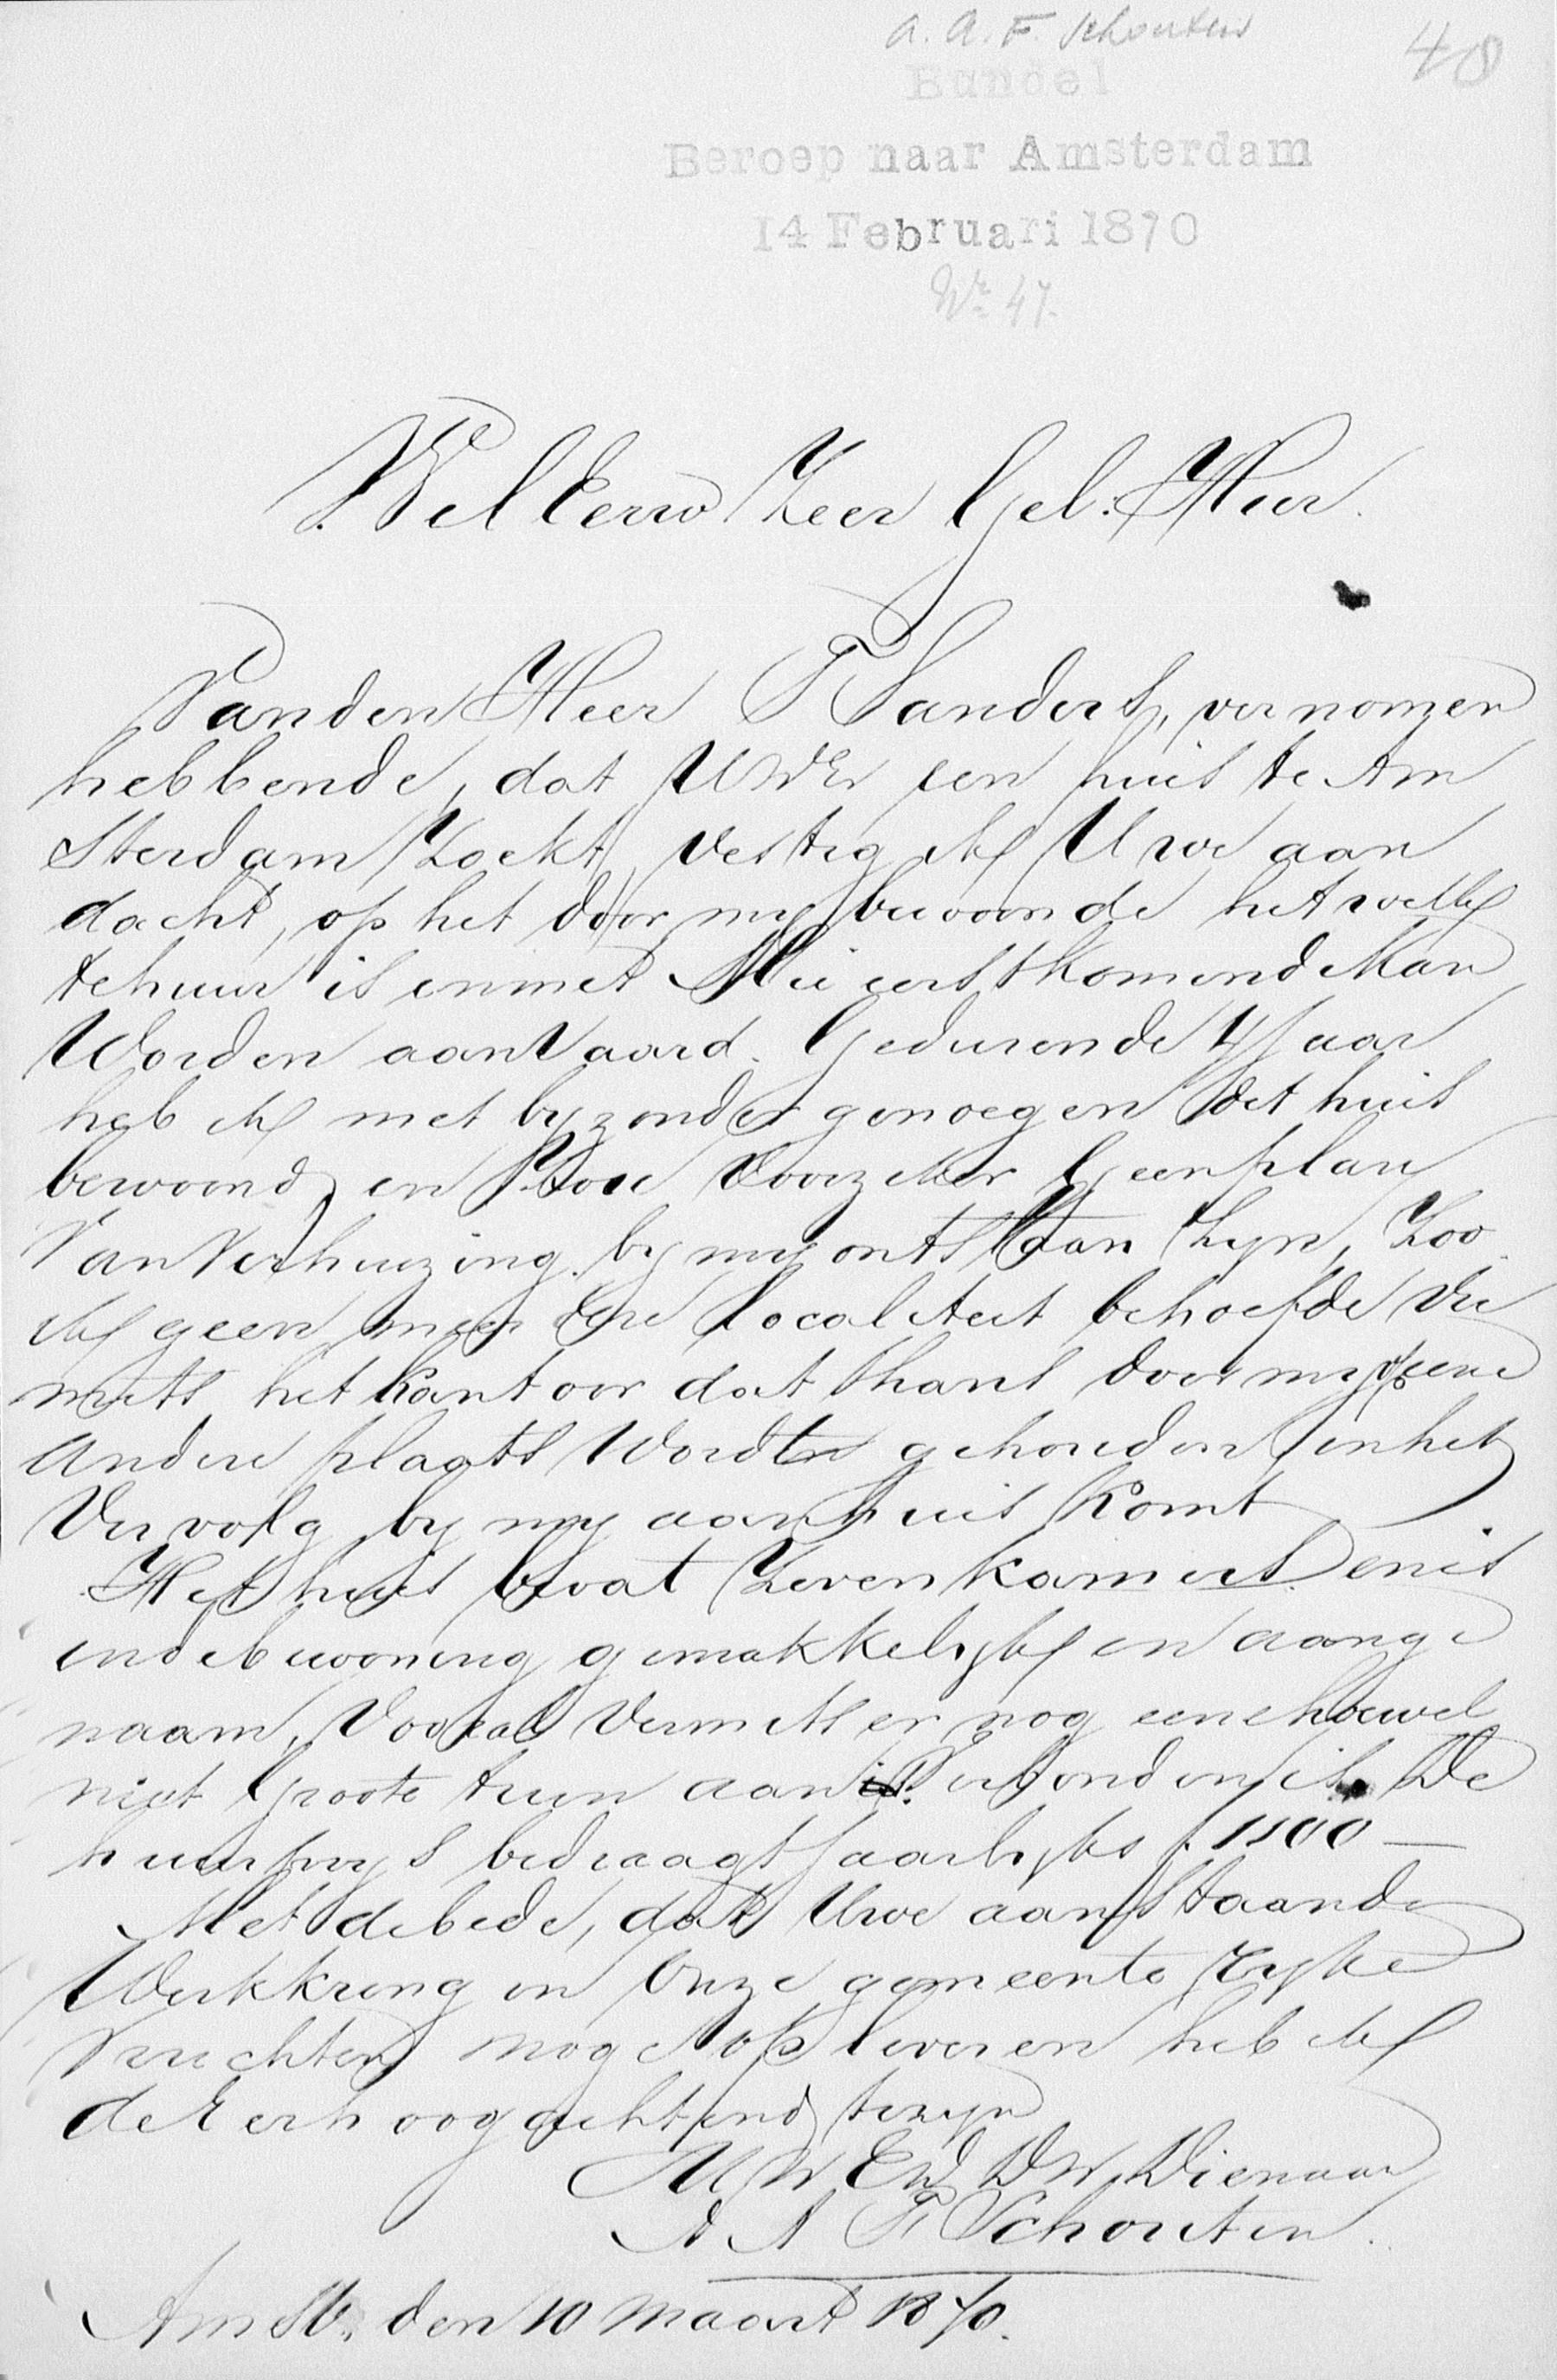 A. A. F. Schouten
48
Bundel
Beroep naar Amsterdam
14 Februari 1870
Nr. 47.
Wel Eerw Zeer Gel. Heer.
Van den Heer F Sanders, vernomen
hebbende, dat UWEw een huis te Am
sterdam zoekt, vestig ik Uwe aan
dacht, op het door my bewoonde hetwelk
te huur is en met Mei eerstkomende kan
worden aanvaard. Gedurende 4 Jaar
heb ik met byzonder genoegen dit huis
bewoond, en zoue voorzeker geen plan
van verhuizing by my ontstaan zyn, zoo
ik geen meerdere localiteit behoefde ver
mits het kantoor dat thans door my op eene
andere plaats wordt gehouden, in het
vervolg by my aan huis komt
Het huis bevat zeven kamers en is
in de bewoning gemakkelyk en aange
naam, vooral vermits er nog eene hoewel
niet groote tuin aan verbonden is. De
huurprys bedraagt Jaarlyks f. 1100 —
Met de bede, dat Uwe aanstaande
Werkkring in Onze gemeente ryke
vruchten moge opleveren heb ik
de Eer hoogachtend te zyn
UWEw DW Dienaar
A A F Schouten.
Amst. den 10 Maart 1870.